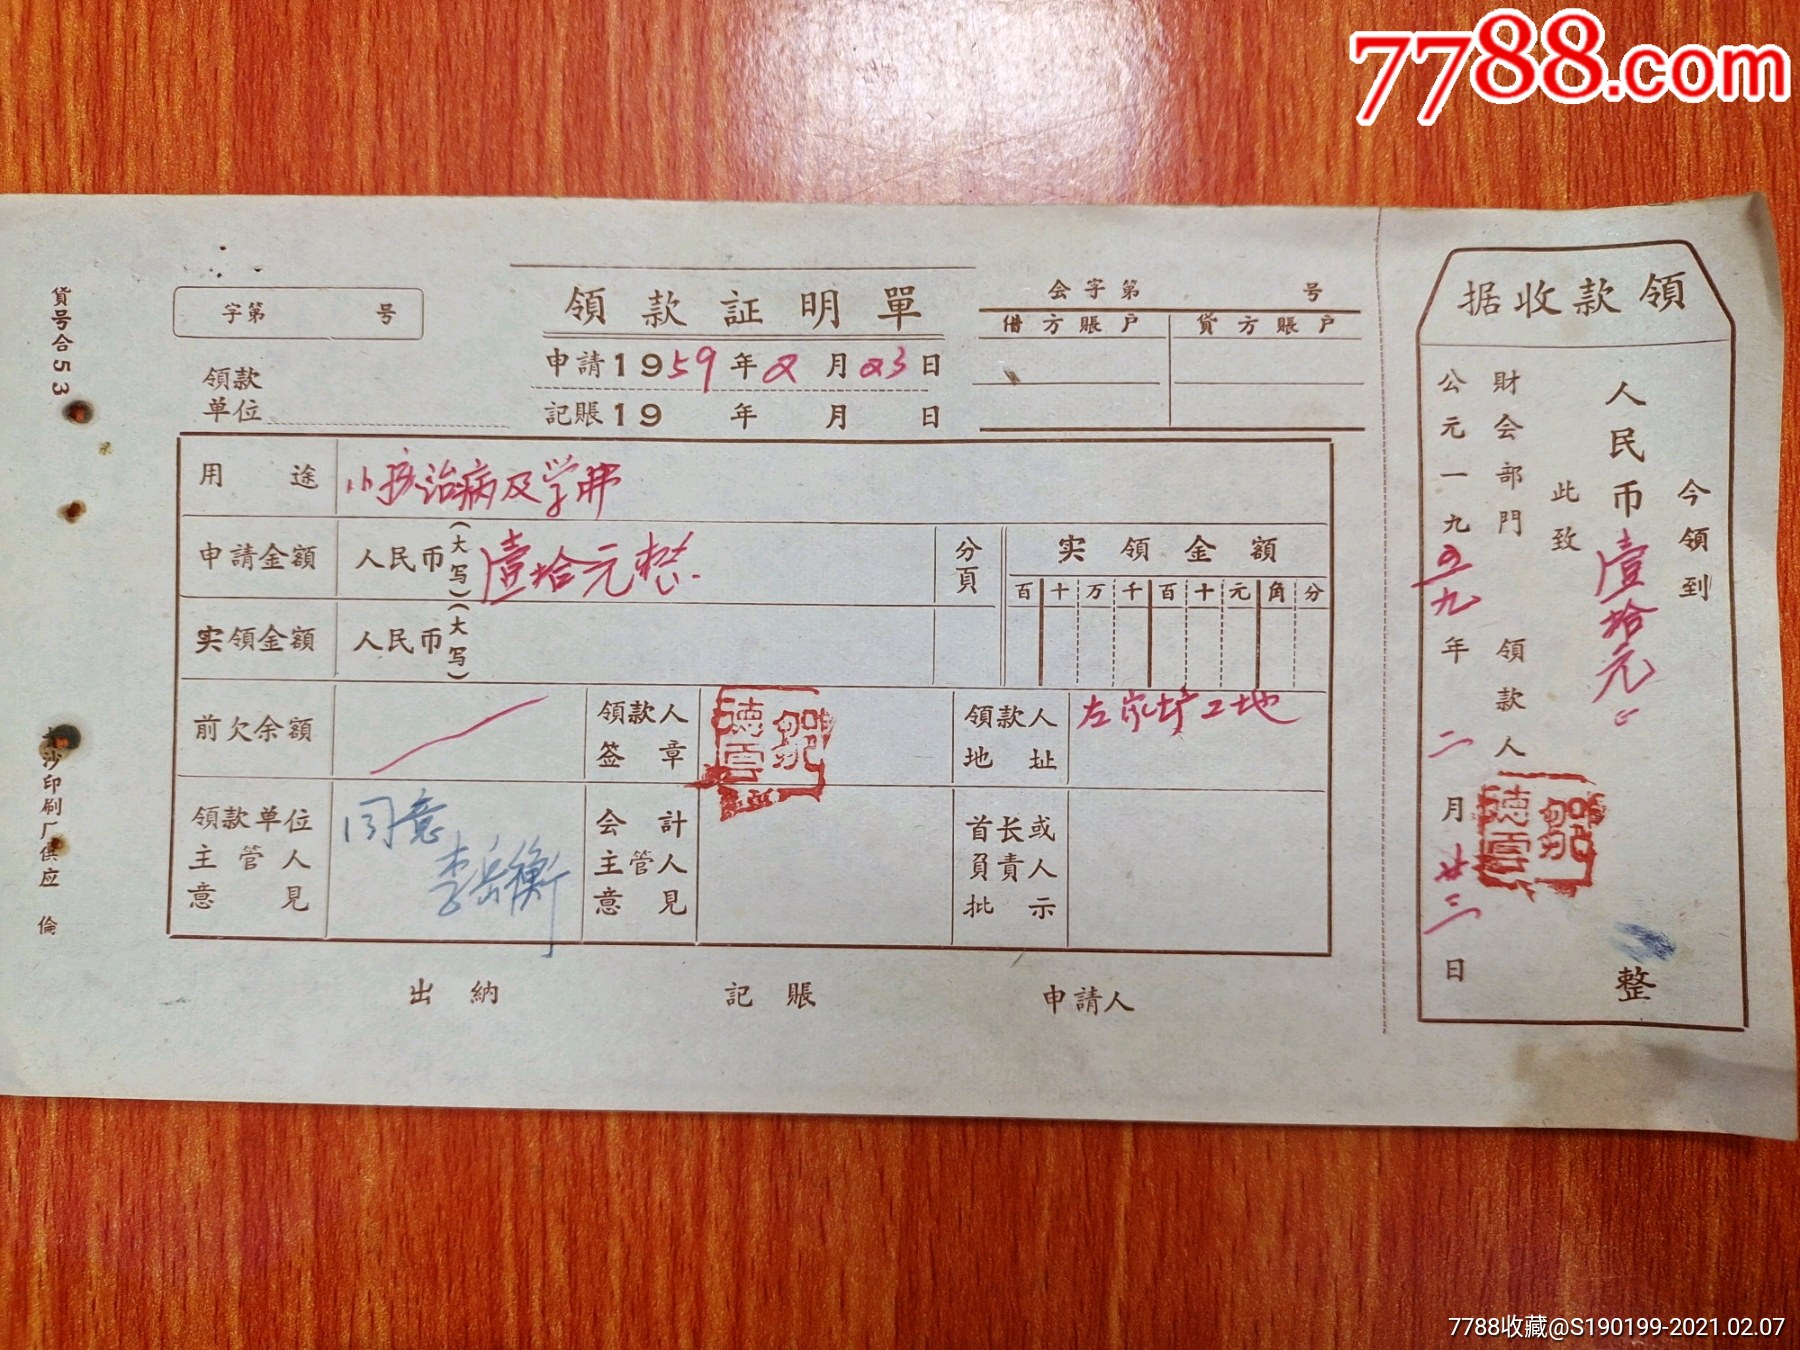 7788.com
貨号合53
長沙印刷厂供应 倫
字第 号
領款証明單
会字第 号
借方賬户 貸方賬户
申請1959年2月23日
記賬19 年 月 日
領款
单位
用途 小孩治病及学费
申請金額 人民币(大写) 壹拾元整.
分頁
实領金額
百十万千百十元角分
实領金額 人民币(大写)
前欠余額
領款人
签章
鄒德雲
領款人
地址
左家垅工地
領款单位
主管人
意見
同意
李岳衡
会計
主管人
意見
首长或
負責人
批示
出納 記賬 申請人
領款收据
今領到
人民币壹拾元 整
此致
財会部門 領款人
鄒德雲
公元一九五九年二月廿三日
7788收藏@S190199-2021.02.07